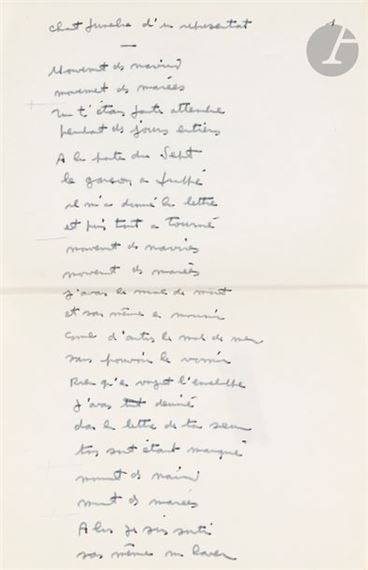 Chant funèbre d'un représentant 1
Mouvements des navires
mouvements des marées
Tu t'étais faite attendre
pendant des jours entiers
A la porte du Sept
le garçon a frappé
il m'a donné la lettre
et puis tout a tourné
mouvements des navires
mouvements des marées
J'avais le mal de mort
et sans même en mourir
comme d'autres le mal de mer
sans pouvoir le vomir
Rien qu'en voyant l'enveloppe
J'avais tout deviné
dans la lettre de ta soeur
tout était marqué
mouvements des navires
mouvements des marées
Alors je suis sorti
sans même me laver